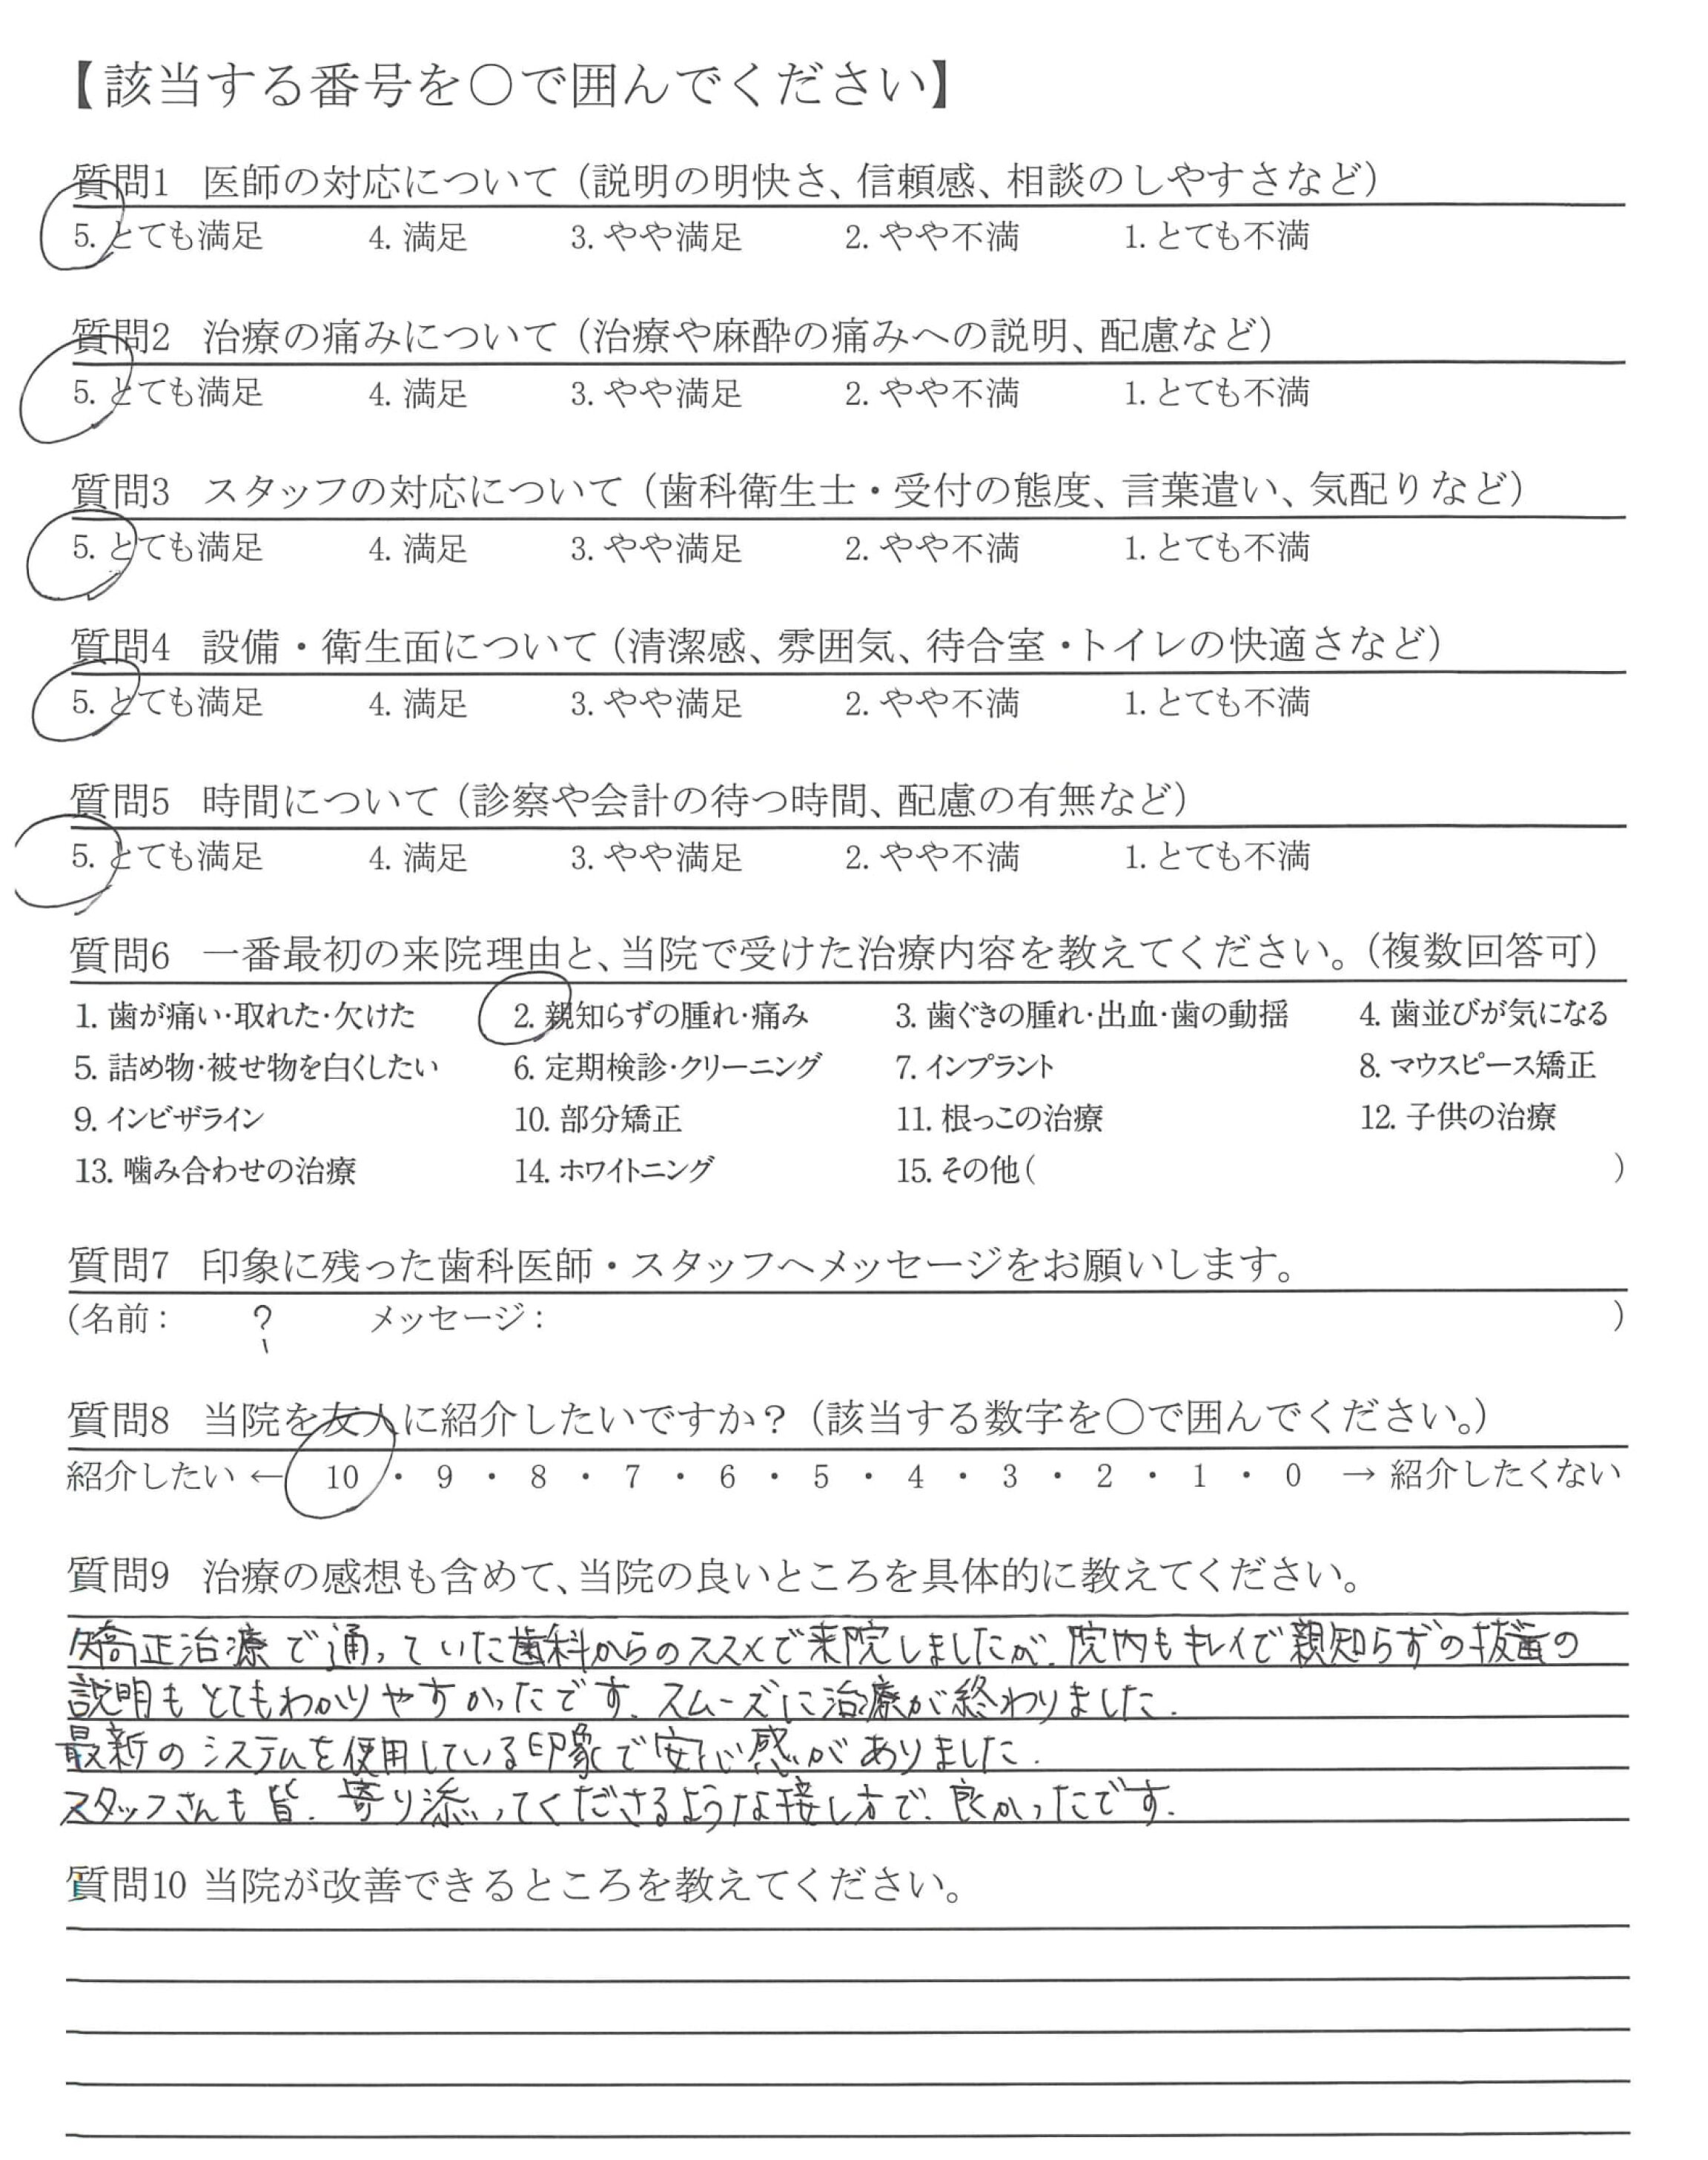 【該当する番号を○で囲んでください】
質問1 医師の対応について（説明の明快さ、信頼感、相談のしやすさなど）
5. とても満足 4. 満足 3. やや満足 2. やや不満 1. とても不満
質問2 治療の痛みについて（治療や麻酔の痛みへの説明、配慮など）
5. とても満足 4. 満足 3. やや満足 2. やや不満 1. とても不満
質問3 スタッフの対応について（歯科衛生士・受付の態度、言葉遣い、気配りなど）
5. とても満足 4. 満足 3. やや満足 2. やや不満 1. とても不満
質問4 設備・衛生面について（清潔感、雰囲気、待合室・トイレの快適さなど）
5. とても満足 4. 満足 3. やや満足 2. やや不満 1. とても不満
質問5 時間について（診察や会計の待つ時間、配慮の有無など）
5. とても満足 4. 満足 3. やや満足 2. やや不満 1. とても不満
質問6 一番最初の来院理由と、当院で受けた治療内容を教えてください。（複数回答可）
1. 歯が痛い・取れた・欠けた 2. 親知らずの腫れ・痛み 3. 歯ぐきの腫れ・出血・歯の動揺 4. 歯並びが気になる
5. 詰め物・被せ物を白くしたい 6. 定期検診・クリーニング 7. インプラント 8. マウスピース矯正
9. インビザライン 10. 部分矯正 11. 根っこの治療 12. 子供の治療
13. 噛み合わせの治療 14. ホワイトニング 15. その他（ ）
質問7 印象に残った歯科医師・スタッフへメッセージをお願いします。
（名前： ? メッセージ： ）
質問8 当院を友人に紹介したいですか？（該当する数字を○で囲んでください。）
紹介したい ← 10 ・ 9 ・ 8 ・ 7 ・ 6 ・ 5 ・ 4 ・ 3 ・ 2 ・ 1 ・ 0 → 紹介したくない
質問9 治療の感想も含めて、当院の良いところを具体的に教えてください。
矯正治療で通っていた歯科からのススメで来院しましたが、院内もキレイで親知らずの抜歯の
説明もとてもわかりやすかったです。スムーズに治療が終わりました。
最新のシステムを使用している印象で安心感がありました。
スタッフさんも皆、寄り添ってくださるような接し方で、良かったです。
質問10 当院が改善できるところを教えてください。